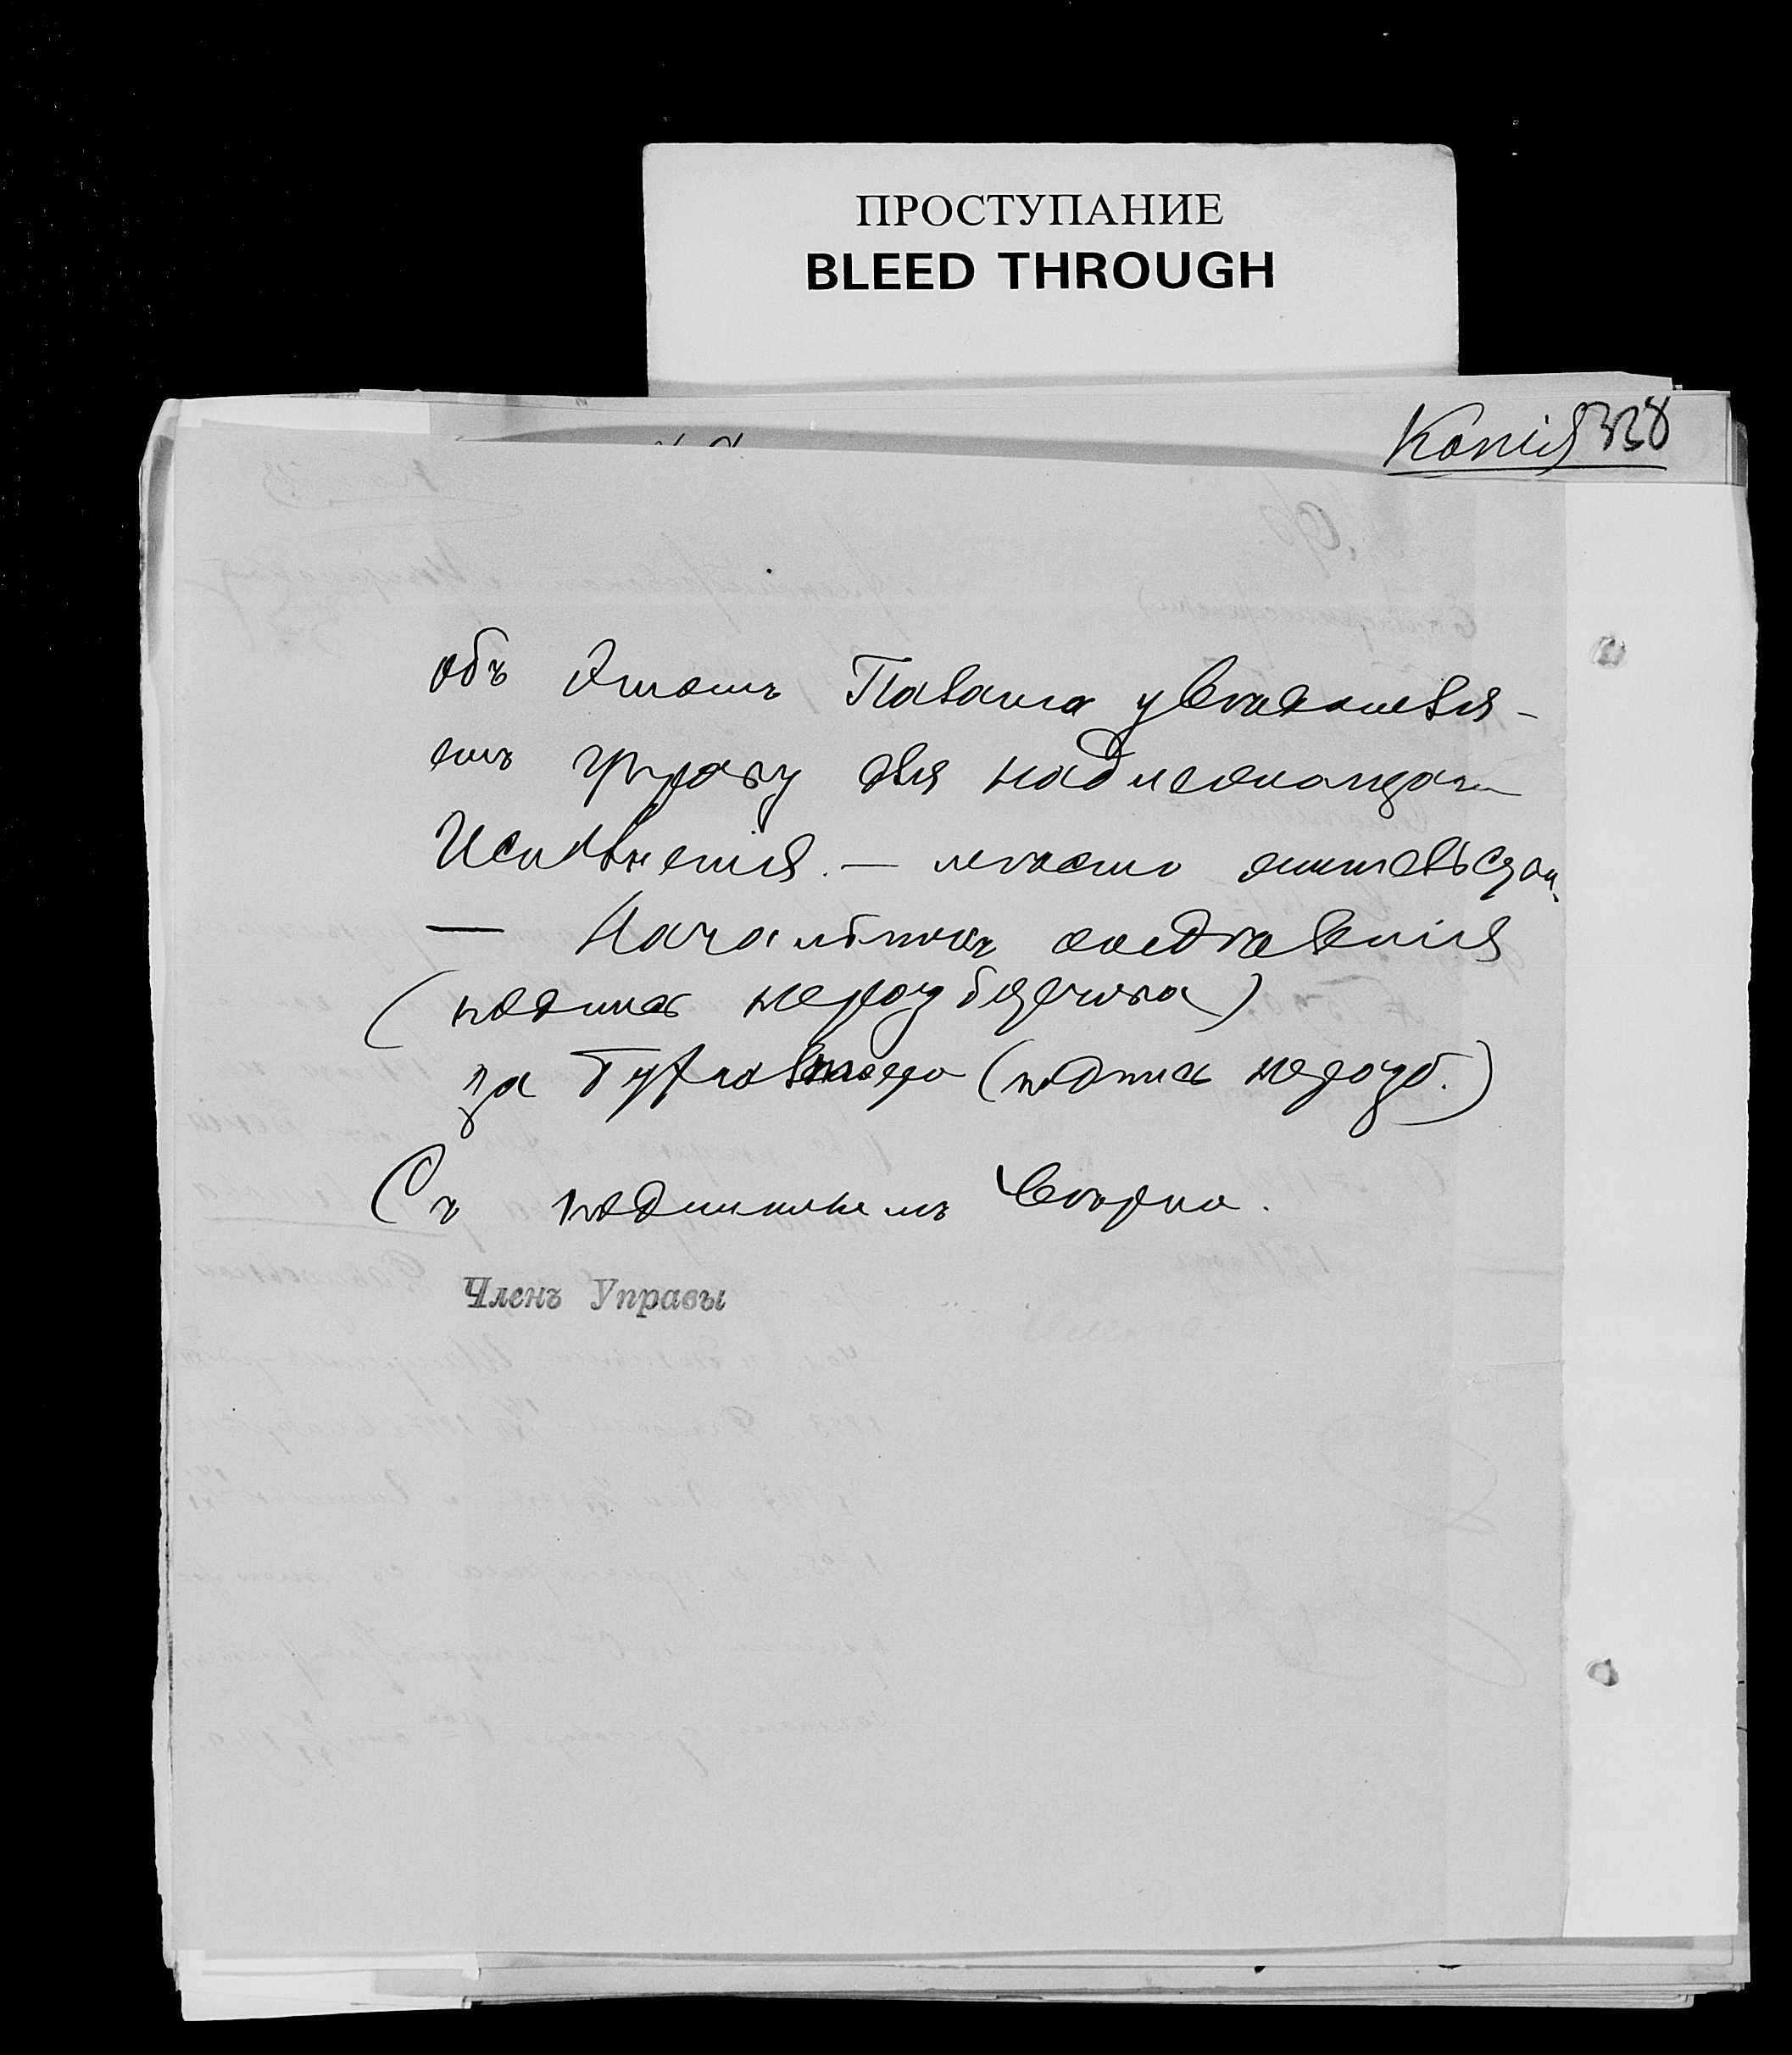 ПРОСТУПАНИЕ
BLEED THROUGH
Копія 328
объ этомъ Палата увѣдомля-
етъ Управу для надлежащаго
Исполненія. — мѣсто
— Начальникъ отдѣленія
(подпись неразборчива)
за Бухгалтера (подпись неразб.)
Съ подлиннымъ вѣрно.
Членъ Управы